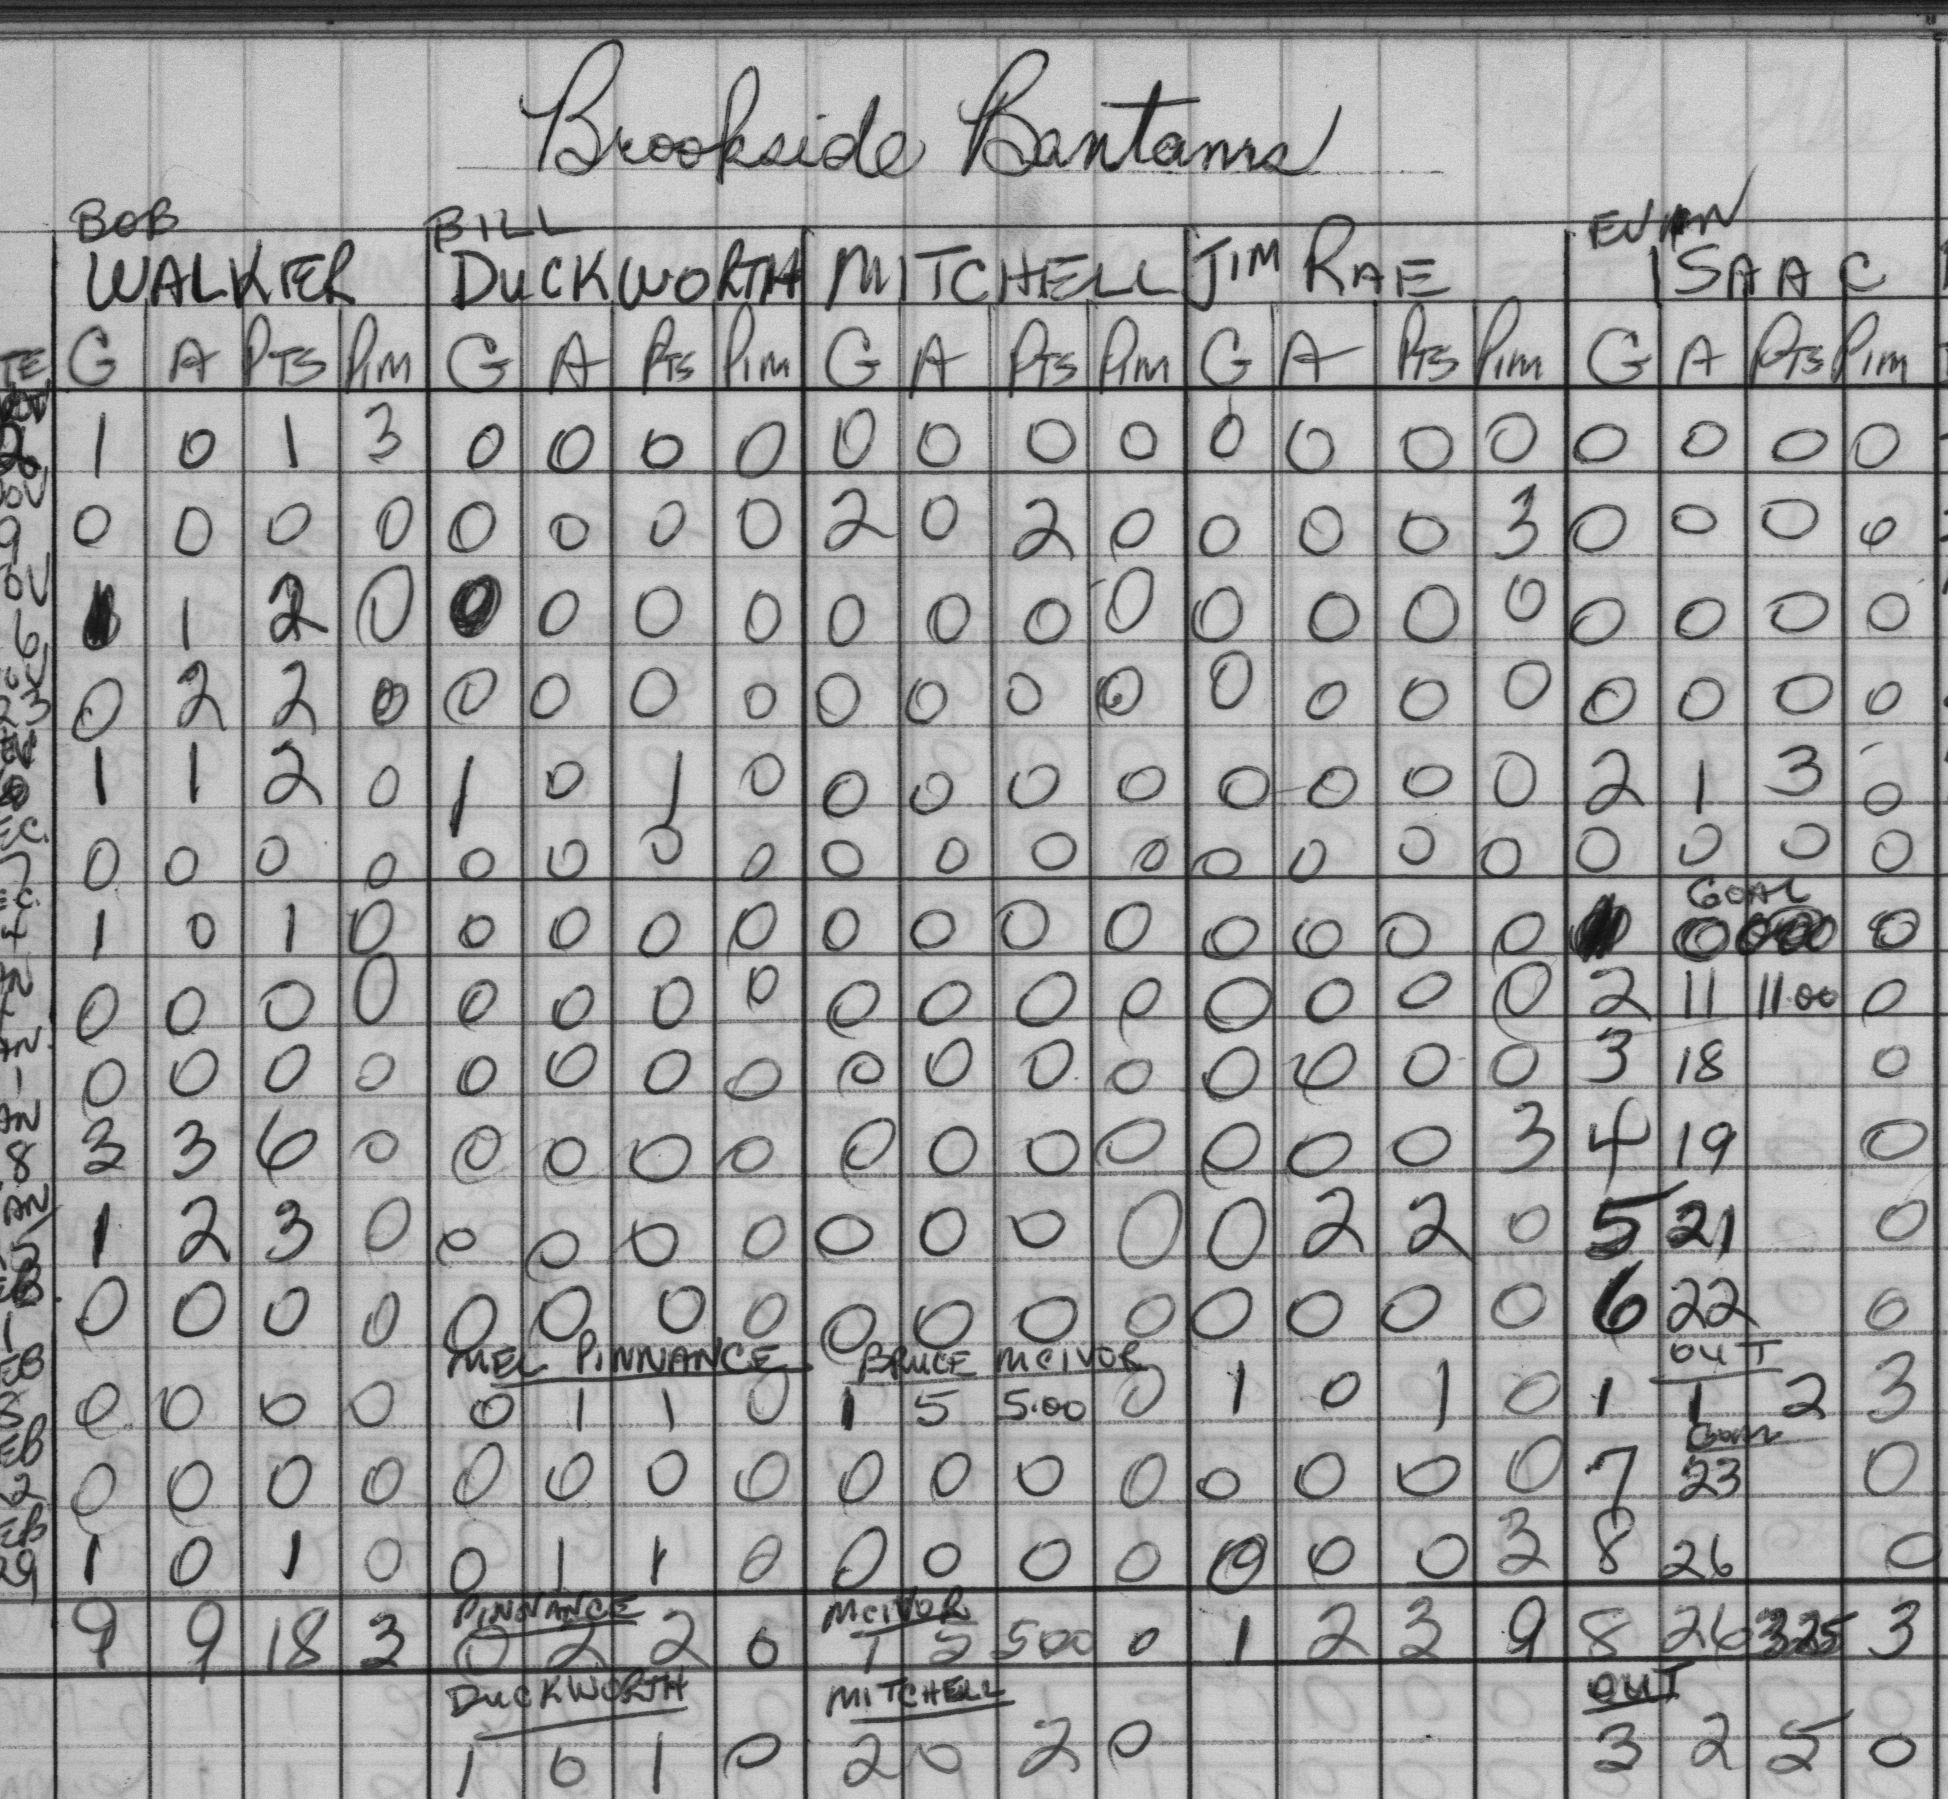 Brookside Bantams
BOB BILL EVAN
WALKER DUCKWORTH MITCHELL JIM RAE ISAAC
TE G A PTS PIM G A PTS PIM G A PTS PIM G A PTS PIM G A PTS PIM
1 0 1 3 0 0 0 0 0 0 0 0 0 0 0 0 0 0 0 0
OV
9 0 0 0 0 0 0 0 0 2 0 2 0 0 0 0 3 0 0 0 0
OV
6 1 1 2 0 0 0 0 0 0 0 0 0 0 0 0 0 0 0 0 0
23 0 2 2 0 0 0 0 0 0 0 0 0 0 0 0 0 0 0 0 0
1 1 2 0 1 0 1 0 0 0 0 0 0 0 0 0 2 1 3 0
EC.
7 0 0 0 0 0 0 0 0 0 0 0 0 0 0 0 0 0 0 0 0
EC. GOAL
4 1 0 1 0 0 0 0 0 0 0 0 0 0 0 0 0 0
AN
0 0 0 0 0 0 0 0 0 0 0 0 0 0 0 0 2 11 11.00 0
AN.
1 0 0 0 0 0 0 0 0 0 0 0 0 0 0 0 0 3 18 0
AN
8 3 3 6 0 0 0 0 0 0 0 0 0 0 0 0 3 4 19 0
AN
5 1 2 3 0 0 0 0 0 0 0 0 0 0 2 2 0 5 21 0
EB.
1 0 0 0 0 0 0 0 0 0 0 0 0 0 0 0 0 6 22 0
EB MEL PINNANCE BRUCE MCIVOR OUT
8 0 0 0 0 0 1 1 0 1 5 5.00 0 1 0 1 0 1 1 2 3
EB GOAL
2 0 0 0 0 0 0 0 0 0 0 0 0 0 0 0 0 7 23 0
EB
29 1 0 1 0 0 1 1 0 0 0 0 0 0 0 0 3 8 26 0
PINNANCE MCIVOR
9 9 18 3 0 2 2 0 1 5 500 0 1 2 3 9 8 26 325 3
DUCKWORTH MITCHELL OUT
1 0 1 0 2 0 2 0 3 2 5 0